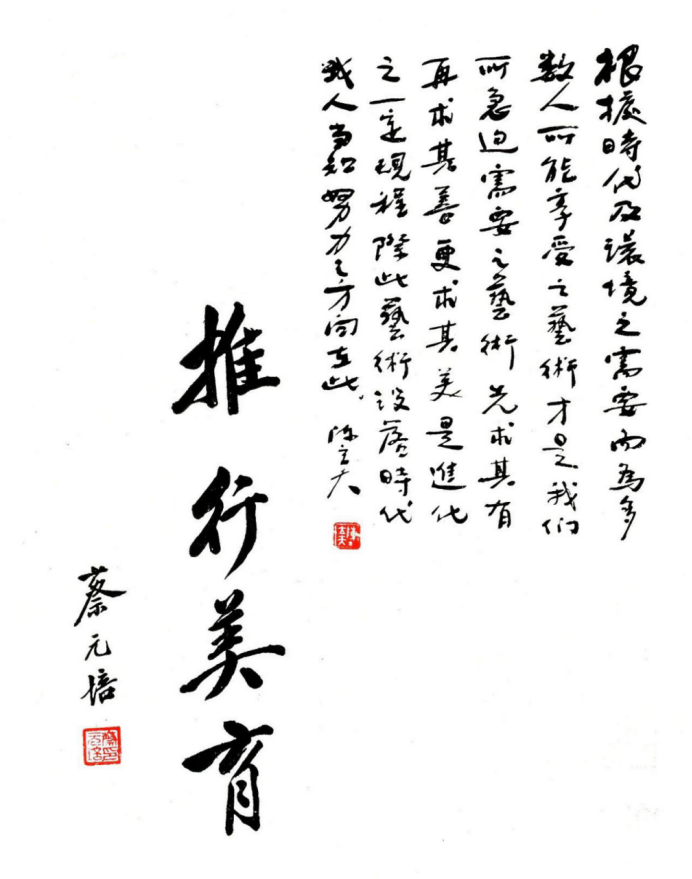 根據時代及環境之需要而為多
数人所能享受之藝術才是我们
所急迫需要之藝術先求其有
再求其善更求其美是進化
之一定現程際此藝術沒落時代
我人当知努力之方向在此
推行美育
蔡元培